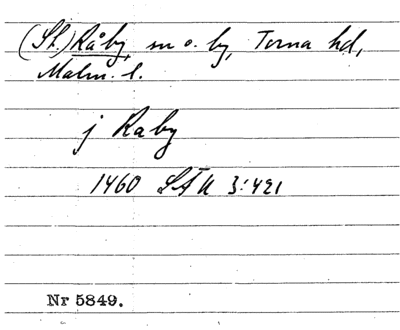 (St.) Råby, sn o. by, Torna hd,
Malm. l.
j Raby
1460 LÄU 3:421
Nr 5849.